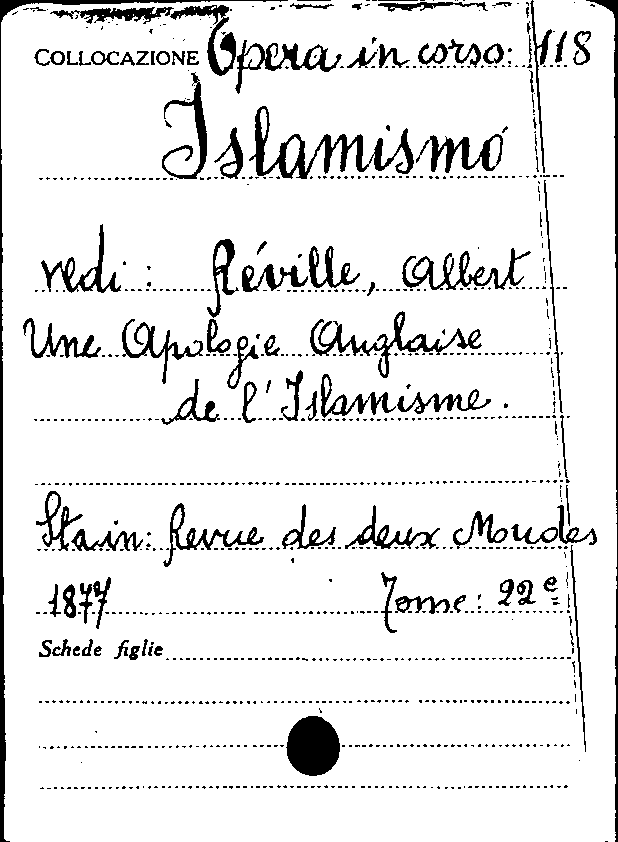 COLLOCAZIONE Opera in corso: 118
Islamismo
vedi: Réville, Albert
Une Apologie Anglaise
de l'Islamisme.
Sta in: Revue des deux Mondes
1877 Tome: 22e
Schede figlie